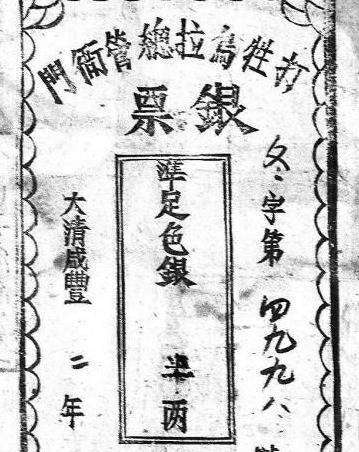 打牲烏拉總管衙門
銀票
冬字第四九九八
準足色銀 半两
大清咸豐 二年